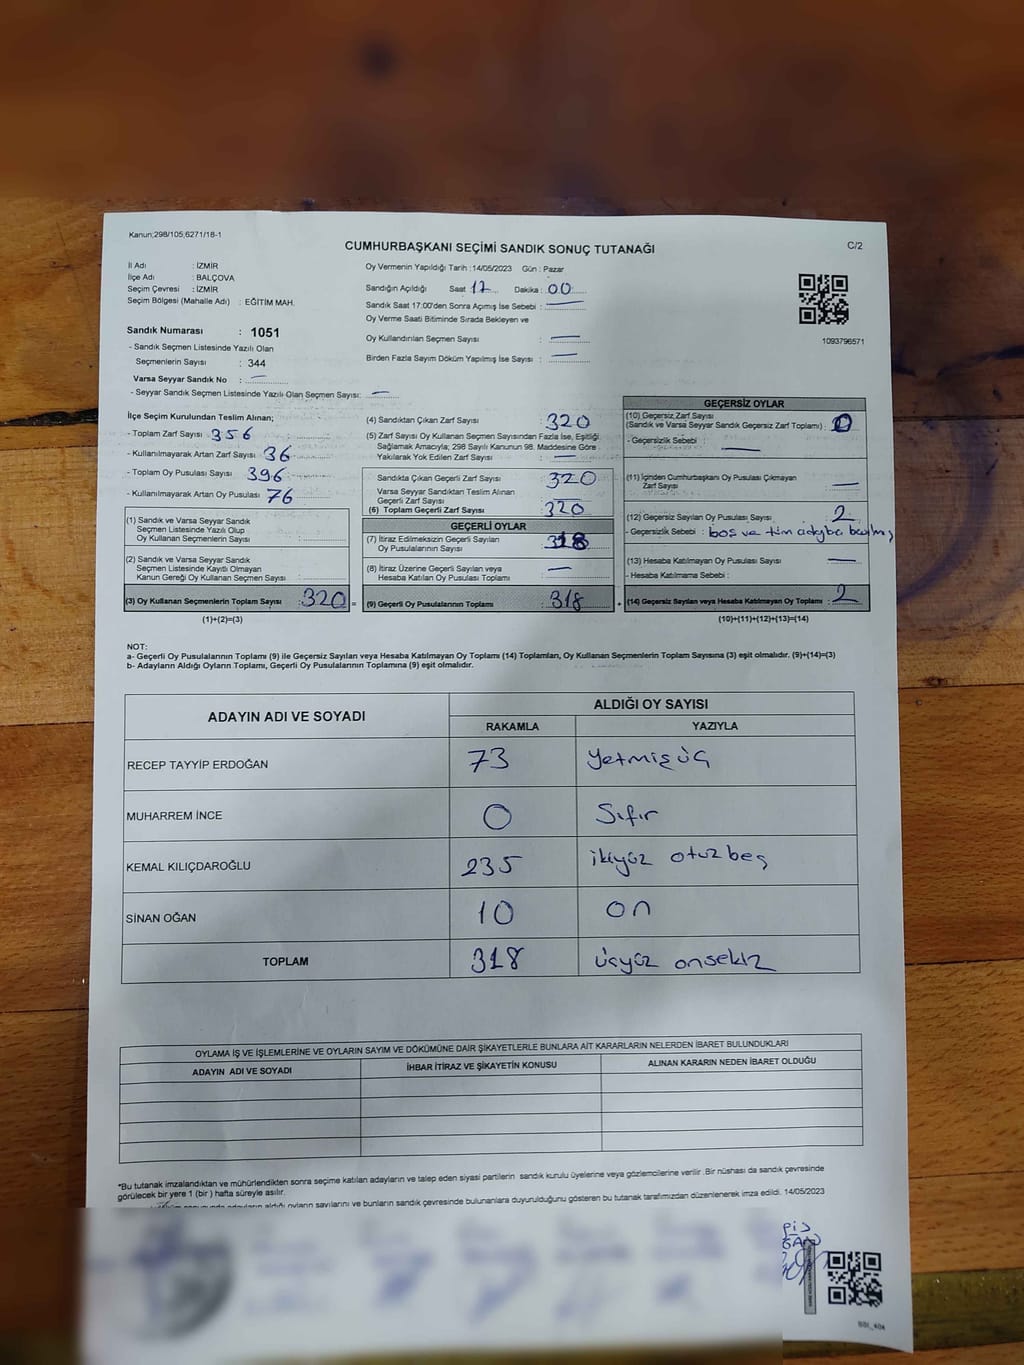 Kanun;298/105,6271/18-1
CUMHURBAŞKANI SEÇİMİ SANDIK SONUÇ TUTANAĞI
C/2
İl Adı : İZMİR
İlçe Adı : BALÇOVA
Seçim Çevresi : İZMİR
Seçim Bölgesi (Mahalle Adı) : EĞİTİM MAH.
Sandık Numarası : 1051
- Sandık Seçmen Listesinde Yazılı Olan
Seçmenlerin Sayısı : 344
Varsa Seyyar Sandık No : —
- Seyyar Sandık Seçmen Listesinde Yazılı Olan Seçmen Sayısı: —
Oy Vermenin Yapıldığı Tarih : 14/05/2023 Gün : Pazar
Sandığın Açıldığı Saat 17 Dakika : 00
Sandık Saat 17:00'den Sonra Açımış İse Sebebi : —
Oy Verme Saati Bitiminde Sırada Bekleyen ve
Oy Kullandırılan Seçmen Sayısı : —
Birden Fazla Sayım Döküm Yapılmış İse Sayısı : —
1093796571
İlçe Seçim Kurulundan Teslim Alınan;
- Toplam Zarf Sayısı 356
- Kullanılmayarak Artan Zarf Sayısı 36
- Toplam Oy Pusulası Sayısı 396
- Kullanılmayarak Artan Oy Pusulası 76
(1) Sandık ve Varsa Seyyar Sandık
Seçmen Listesinde Yazılı Olup
Oy Kullanan Seçmenlerin Sayısı :
(2) Sandık ve Varsa Seyyar Sandık
Seçmen Listesinde Kayıtlı Olmayan
Kanun Gereği Oy Kullanan Seçmen Sayısı :
(3) Oy Kullanan Seçmenlerin Toplam Sayısı : 320 =
(1)+(2)=(3)
(4) Sandıktan Çıkan Zarf Sayısı : 320
(5) Zarf Sayısı Oy Kullanan Seçmen Sayısından Fazla İse, Eşitliği
Sağlamak Amacıyla; 298 Sayılı Kanunun 98. Maddesine Göre
Yakılarak Yok Edilen Zarf Sayısı : —
Sandıkta Çıkan Geçerli Zarf Sayısı : 320
Varsa Seyyar Sandıktan Teslim Alınan
Geçerli Zarf Sayısı : —
(6) Toplam Geçerli Zarf Sayısı : 320
GEÇERLİ OYLAR
(7) İtiraz Edilmeksizin Geçerli Sayılan
Oy Pusulalarının Sayısı : 318
(8) İtiraz Üzerine Geçerli Sayılan veya
Hesaba Katılan Oy Pusulası Toplamı : —
(9) Geçerli Oy Pusulalarının Toplamı : 318 +
GEÇERSİZ OYLAR
(10) Geçersiz Zarf Sayısı
(Sandık ve Varsa Seyyar Sandık Geçersiz Zarf Toplamı) : 0
- Geçersizlik Sebebi : —
(11) İçinden Cumhurbaşkanı Oy Pusulası Çıkmayan
Zarf Sayısı : —
(12) Geçersiz Sayılan Oy Pusulası Sayısı : 2
- Geçersizlik Sebebi : boş ve tüm adaylara
(13) Hesaba Katılmayan Oy Pusulası Sayısı : —
- Hesaba Katılmama Sebebi :
(14) Geçersiz Sayılan veya Hesaba Katılmayan Oy Toplamı : 2
(10)+(11)+(12)+(13)=(14)
NOT:
a- Geçerli Oy Pusulalarının Toplamı (9) ile Geçersiz Sayılan veya Hesaba Katılmayan Oy Toplamı (14) Toplamları, Oy Kullanan Seçmenlerin Toplam Sayısına (3) eşit olmalıdır. (9)+(14)=(3)
b- Adayların Aldığı Oyların Toplamı, Geçerli Oy Pusulalarının Toplamına (9) eşit olmalıdır.
ADAYIN ADI VE SOYADI
ALDIĞI OY SAYISI
RAKAMLA YAZIYLA
RECEP TAYYİP ERDOĞAN 73 yetmişüç
MUHARREM İNCE 0 Sıfır
KEMAL KILIÇDAROĞLU 235 ikiyüz otuzbeş
SİNAN OĞAN 10 on
TOPLAM 318 üçyüz onsekiz
OYLAMA İŞ VE İŞLEMLERİNE VE OYLARIN SAYIM VE DÖKÜMÜNE DAİR ŞİKAYETLERLE BUNLARA AİT KARARLARIN NELERDEN İBARET BULUNDUKLARI
ADAYIN ADI VE SOYADI
İHBAR İTİRAZ VE ŞİKAYETİN KONUSU
ALINAN KARARIN NEDEN İBARET OLDUĞU
*Bu tutanak imzalandıktan ve mühürlendikten sonra seçime katılan adayların ve talep eden siyasi partilerin sandık kurulu üyelerine veya gözlemcilerine verilir .Bir nüshası da sandık çevresinde
görülecek bir yere 1 (bir ) hafta süreyle asılır.
adayların aldığı oyların sayılarını ve bunların sandık çevresinde bulunanlara duyurulduğunu gösteren bu tutanak tarafımızdan düzenlenerek imza edildi. 14/05/2023